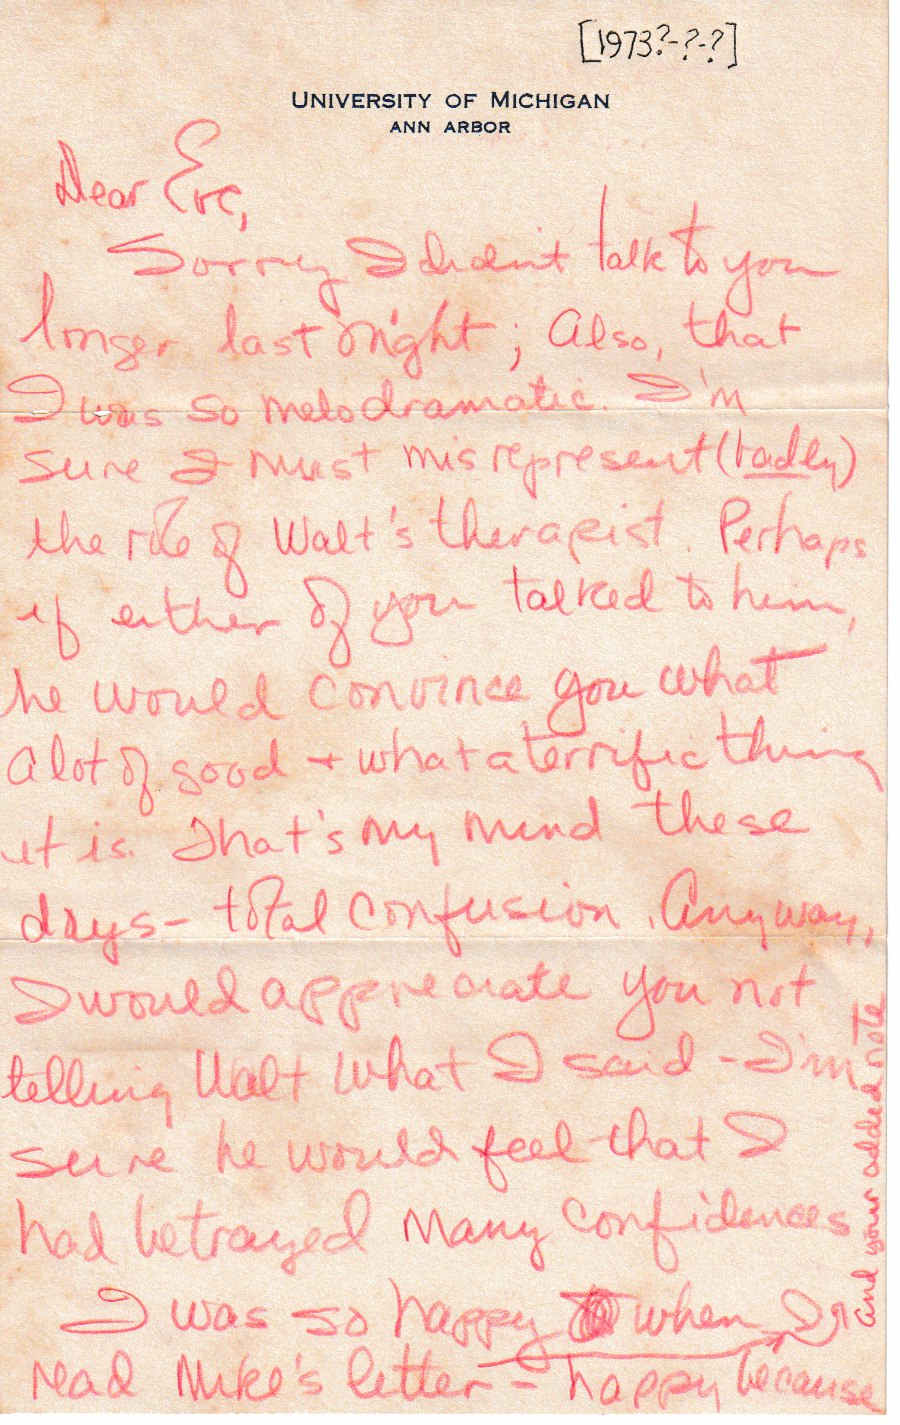 [1973?-?-?]
UNIVERSITY OF MICHIGAN
ANN ARBOR
Dear Eve,
Sorry I didn't talk to you
longer last night; Also, that
I was so melodramatic. I'm
sure I must misrepresent (badly)
the role of Walt's therapist. Perhaps
if either of you talked to him,
he would convince you what
a lot of good + what a terrific thing
it is. That's my mind these
days - total confusion. Anyway,
I would appreciate you not
telling Walt what I said - I'm
sure he would feel that I
had betrayed many confidences
I was so happy when I
read Mike's letter - happy because
and your added note